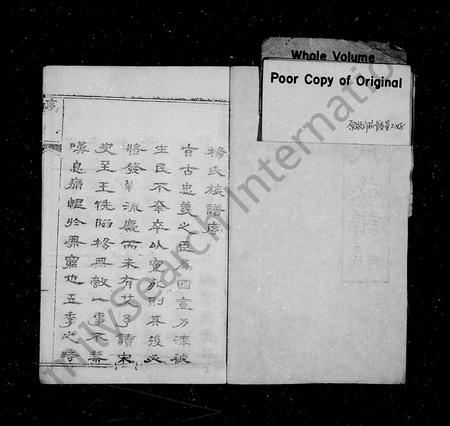 Whole Volume
Poor Copy of Original
序
楊氏族譜序
古忠義之臣為國宣力澤被
生民不幸卒以冤死則其後必
將發華流慶而未有艾予讀宋
史至王侁陷楊無敵一事不禁
嘆息痛恨於無窮也五季之
FamilySearch International